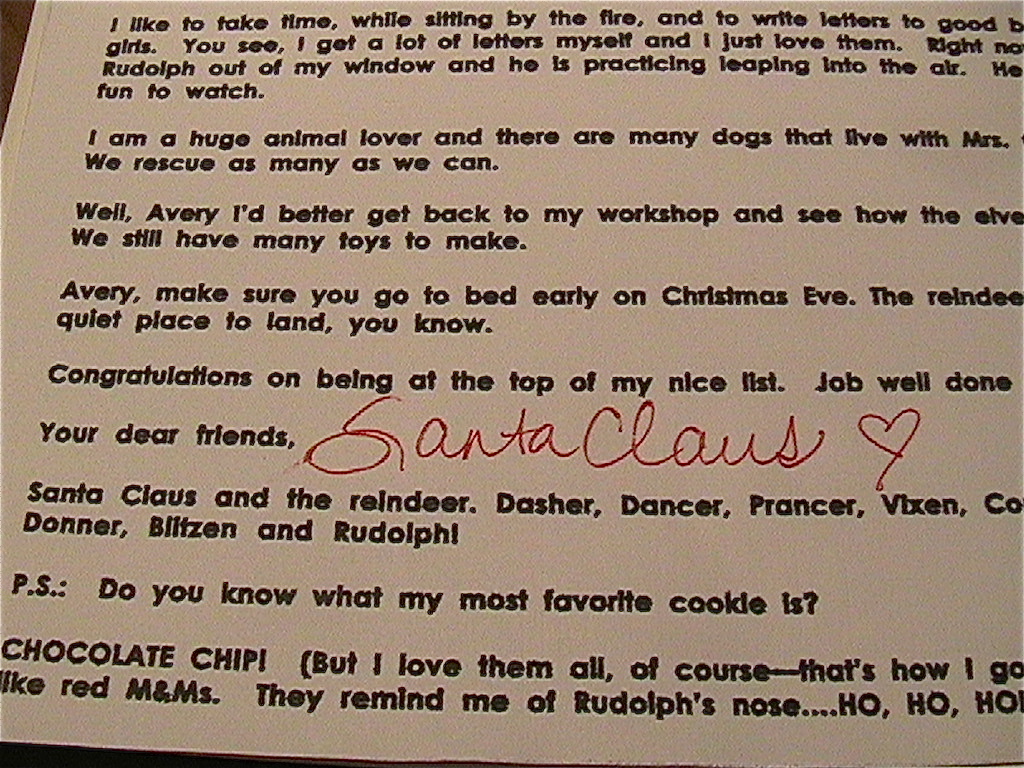 I like to take time, while sitting by the fire, and to write letters to good b
girls. You see, I get a lot of letters myself and I just love them. Right no
Rudolph out of my window and he is practicing leaping into the air. He
fun to watch.
I am a huge animal lover and there are many dogs that live with Mrs.
We rescue as many as we can.
Well, Avery I'd better get back to my workshop and see how the elve
We still have many toys to make.
Avery, make sure you go to bed early on Christmas Eve. The reindee
quiet place to land, you know.
Congratulations on being at the top of my nice list. Job well done
Your dear friends, Santa Claus
Santa Claus and the reindeer. Dasher, Dancer, Prancer, Vixen, Co
Donner, Blitzen and Rudolph!
P.S.: Do you know what my most favorite cookie is?
CHOCOLATE CHIP! (But I love them all, of course—that's how I go
like red M&Ms. They remind me of Rudolph's nose....HO, HO, HO!